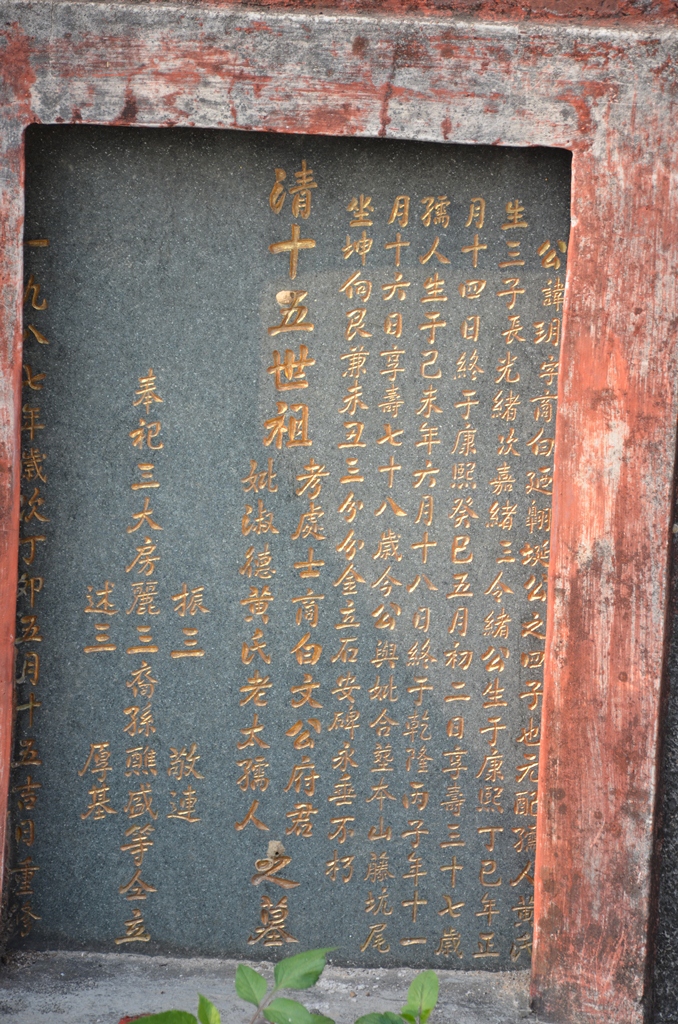 公諱玥字商白廼翺埏公之四子也元配孺人黄氏
生三子長光緒次嘉緒三令緒公生于康熙丁巳年正
月十四日終于康熙癸巳五月初二日享壽三十七歲
孺人生于己未年六月十八日終于乾隆丙子年十一
月十六日享壽七十八歲今公與妣合塟本山藤坑尾
坐坤向艮兼未丑三分分金立石安碑永垂不朽
清十五世祖
考處士商白文公府君
妣淑德黄氏老太孺人
之墓
振三 敬連
奉祀三大房麗三裔孫醮咸等仝立
述三 厚基
一九八七年歲次丁卯五月十五吉日重修